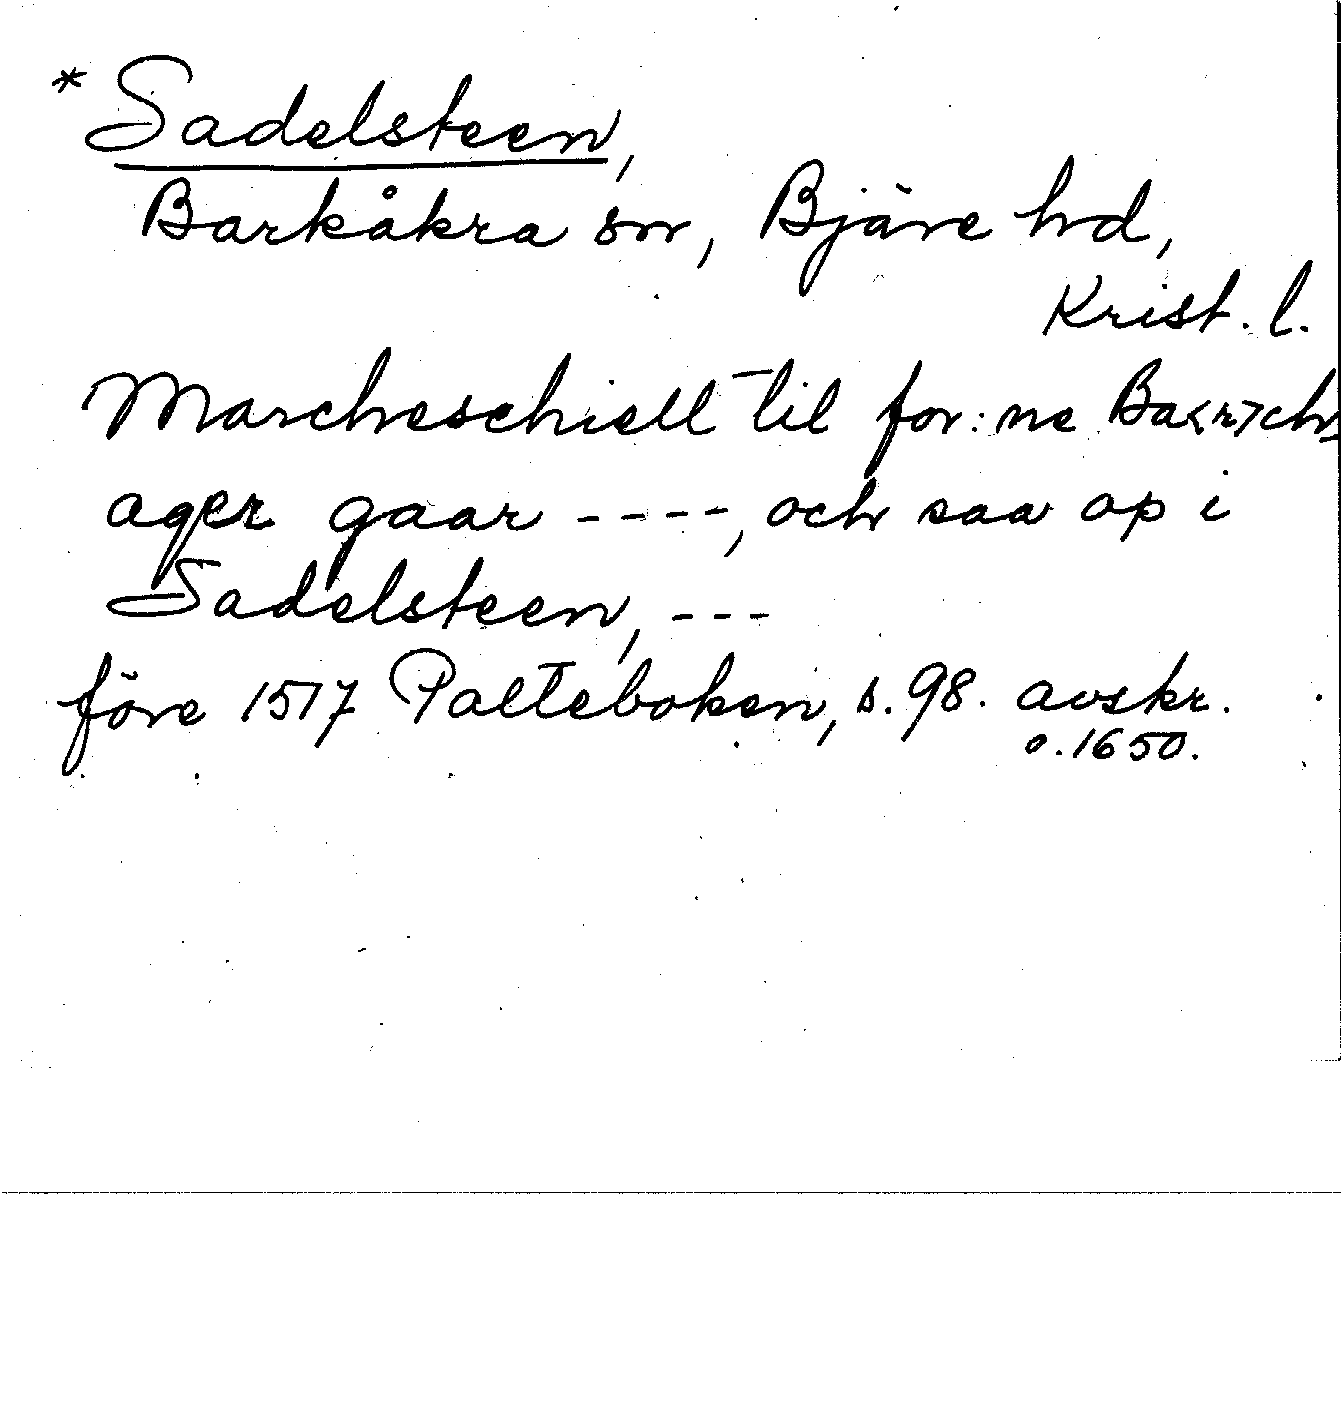 * Sadelsteen,
Barkåkra sn, Bjäre hd,
Krist. l.
Marcheschiell til for:ne Ba<r>ch
ager gaar ----, och saa op i
Sadelsteen, ---
före 1517 Palteboken, s. 98. avskr.
o. 1650.